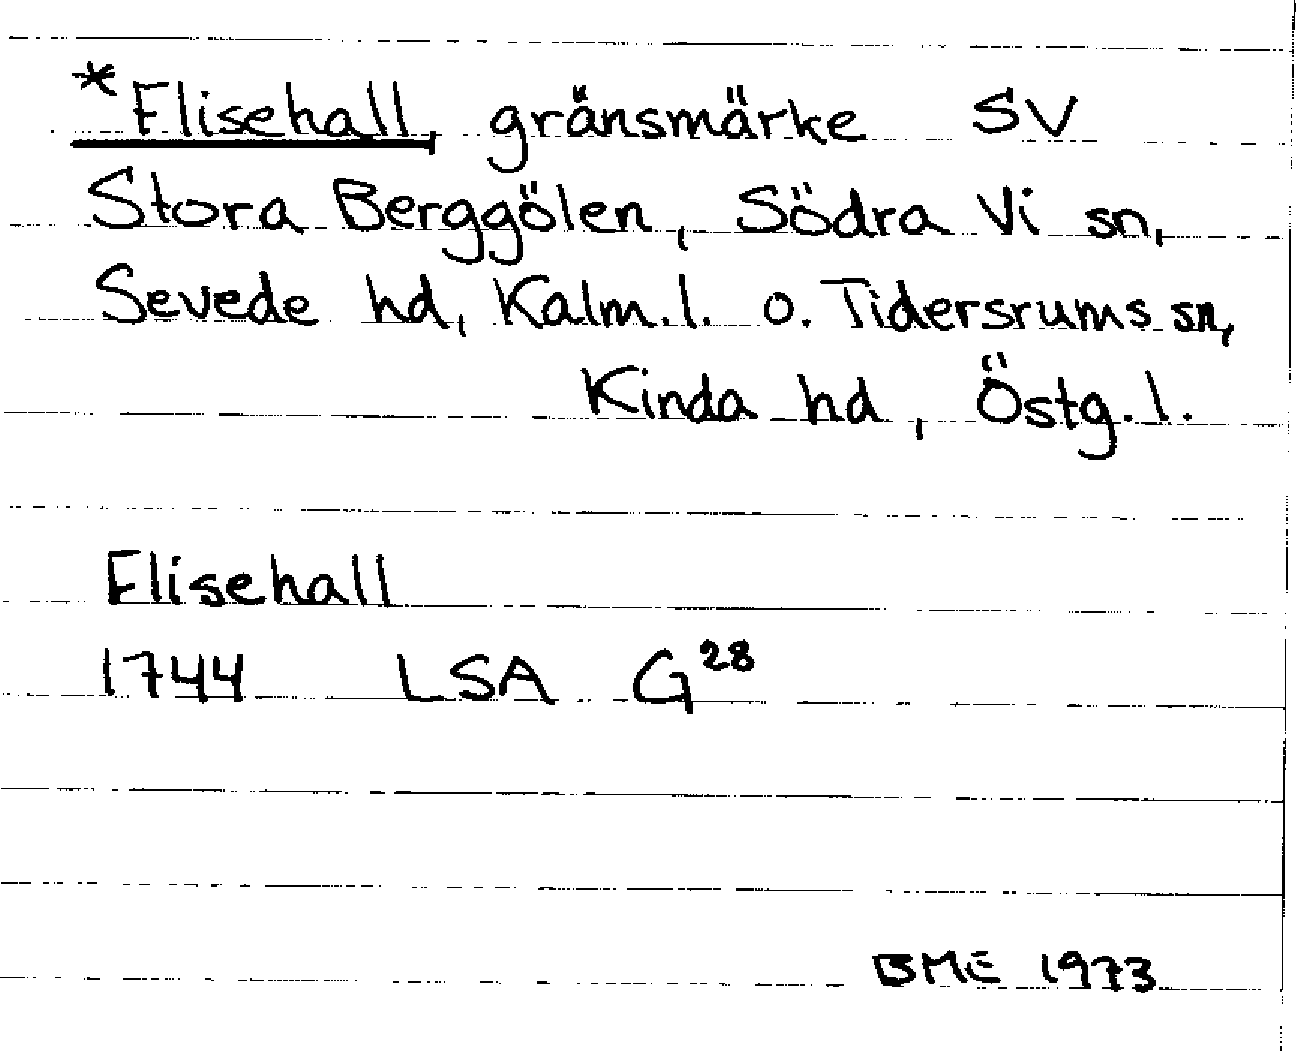 *Elisehall, gränsmärke SV
Stora Berggölen, Södra Vi sn,
Sevede hd, Kalm.l. o. Tidersrums sn,
Kinda hd, Östg.l.
Elisehall
1744 LSA G²⁸
BME 1973